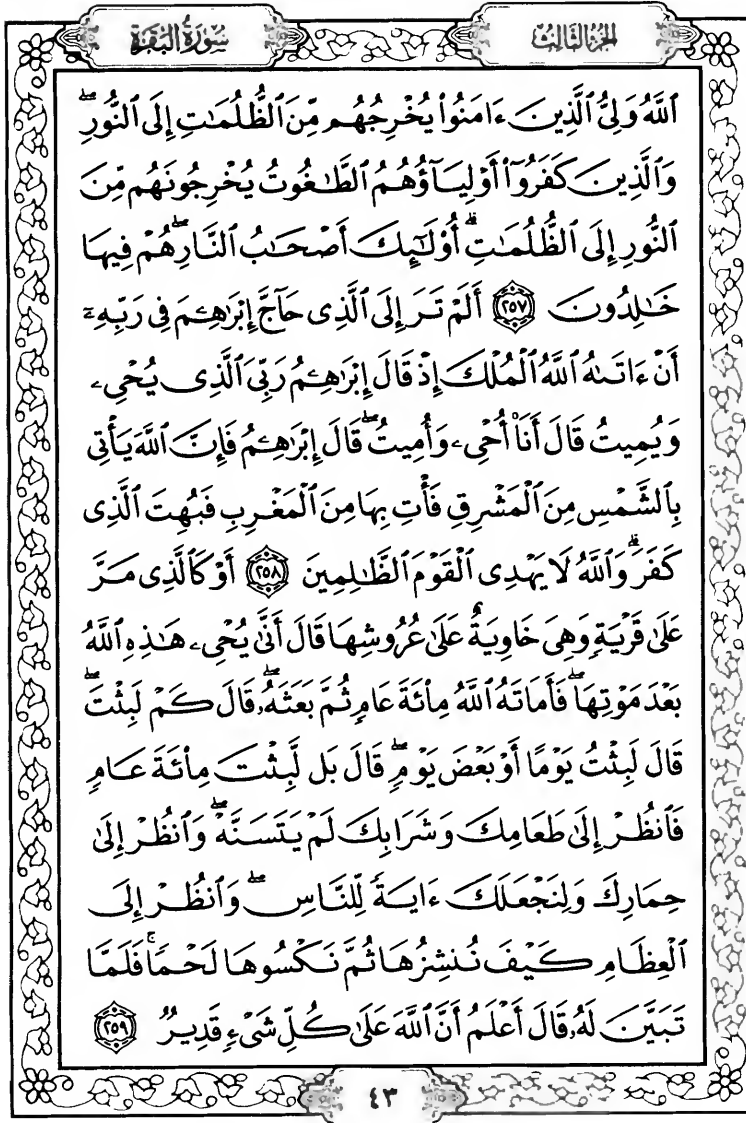 سُورَةُ البَقَرَةِ
الجزء الثالث
ٱللَّهُ وَلِىُّ ٱلَّذِينَ ءَامَنُوا۟ يُخْرِجُهُم مِّنَ ٱلظُّلُمَٰتِ إِلَى ٱلنُّورِ ۖ
وَٱلَّذِينَ كَفَرُوٓا۟ أَوْلِيَآؤُهُمُ ٱلطَّٰغُوتُ يُخْرِجُونَهُم مِّنَ
ٱلنُّورِ إِلَى ٱلظُّلُمَٰتِ ۗ أُو۟لَٰٓئِكَ أَصْحَٰبُ ٱلنَّارِ ۖ هُمْ فِيهَا
خَٰلِدُونَ ٢٥٧ أَلَمْ تَرَ إِلَى ٱلَّذِى حَآجَّ إِبْرَٰهِـۧمَ فِى رَبِّهِۦٓ
أَنْ ءَاتَىٰهُ ٱللَّهُ ٱلْمُلْكَ إِذْ قَالَ إِبْرَٰهِـۧمُ رَبِّىَ ٱلَّذِى يُحْىِۦ
وَيُمِيتُ قَالَ أَنَا۠ أُحْىِۦ وَأُمِيتُ ۖ قَالَ إِبْرَٰهِـۧمُ فَإِنَّ ٱللَّهَ يَأْتِى
بِٱلشَّمْسِ مِنَ ٱلْمَشْرِقِ فَأْتِ بِهَا مِنَ ٱلْمَغْرِبِ فَبُهِتَ ٱلَّذِى
كَفَرَ ۗ وَٱللَّهُ لَا يَهْدِى ٱلْقَوْمَ ٱلظَّٰلِمِينَ ٢٥٨ أَوْ كَٱلَّذِى مَرَّ
عَلَىٰ قَرْيَةٍ وَهِىَ خَاوِيَةٌ عَلَىٰ عُرُوشِهَا قَالَ أَنَّىٰ يُحْىِۦ هَٰذِهِ ٱللَّهُ
بَعْدَ مَوْتِهَا ۖ فَأَمَاتَهُ ٱللَّهُ مِا۟ئَةَ عَامٍ ثُمَّ بَعَثَهُۥ ۖ قَالَ كَمْ لَبِثْتَ ۖ
قَالَ لَبِثْتُ يَوْمًا أَوْ بَعْضَ يَوْمٍ ۖ قَالَ بَل لَّبِثْتَ مِا۟ئَةَ عَامٍ
فَٱنظُرْ إِلَىٰ طَعَامِكَ وَشَرَابِكَ لَمْ يَتَسَنَّهْ ۖ وَٱنظُرْ إِلَىٰ
حِمَارِكَ وَلِنَجْعَلَكَ ءَايَةً لِّلنَّاسِ ۖ وَٱنظُرْ إِلَى
ٱلْعِظَامِ كَيْفَ نُنشِزُهَا ثُمَّ نَكْسُوهَا لَحْمًا ۚ فَلَمَّا
تَبَيَّنَ لَهُۥ قَالَ أَعْلَمُ أَنَّ ٱللَّهَ عَلَىٰ كُلِّ شَىْءٍ قَدِيرٌ ٢٥٩
٤٣